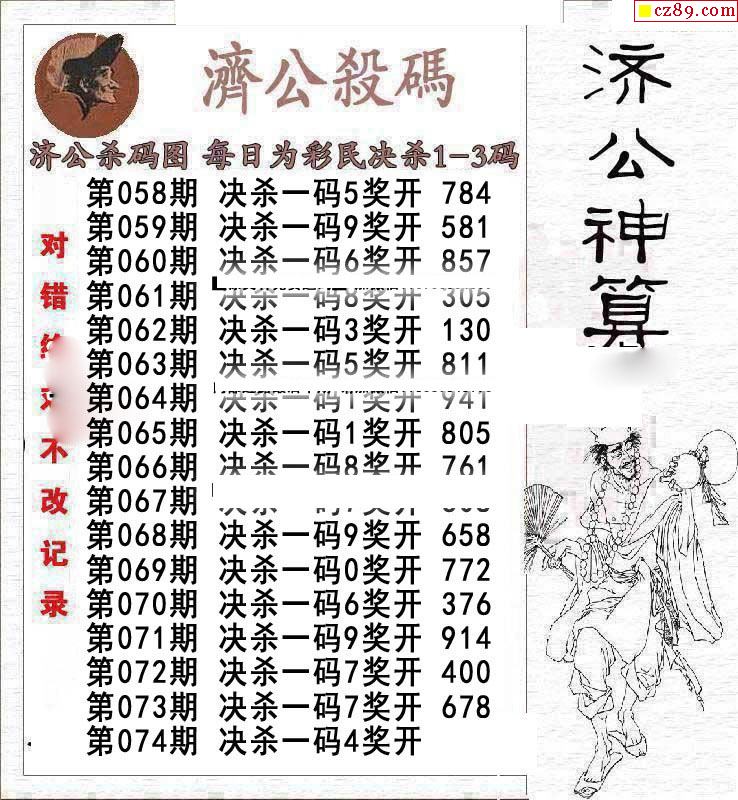 cz89.com
濟公殺碼
济公杀码图 每日为彩民决杀1-3码
第058期 决杀一码5奖开 784
第059期 决杀一码9奖开 581
第060期 决杀一码6奖开 857
第061期 决杀一码8奖开 305
第062期 决杀一码3奖开 130
第063期 决杀一码5奖开 811
第064期 决杀一码1奖开 941
第065期 决杀一码1奖开 805
第066期 决杀一码8奖开 761
第067期
第068期 决杀一码9奖开 658
第069期 决杀一码0奖开 772
第070期 决杀一码6奖开 376
第071期 决杀一码9奖开 914
第072期 决杀一码7奖开 400
第073期 决杀一码7奖开 678
第074期 决杀一码4奖开
对错 不改记录
济公神算